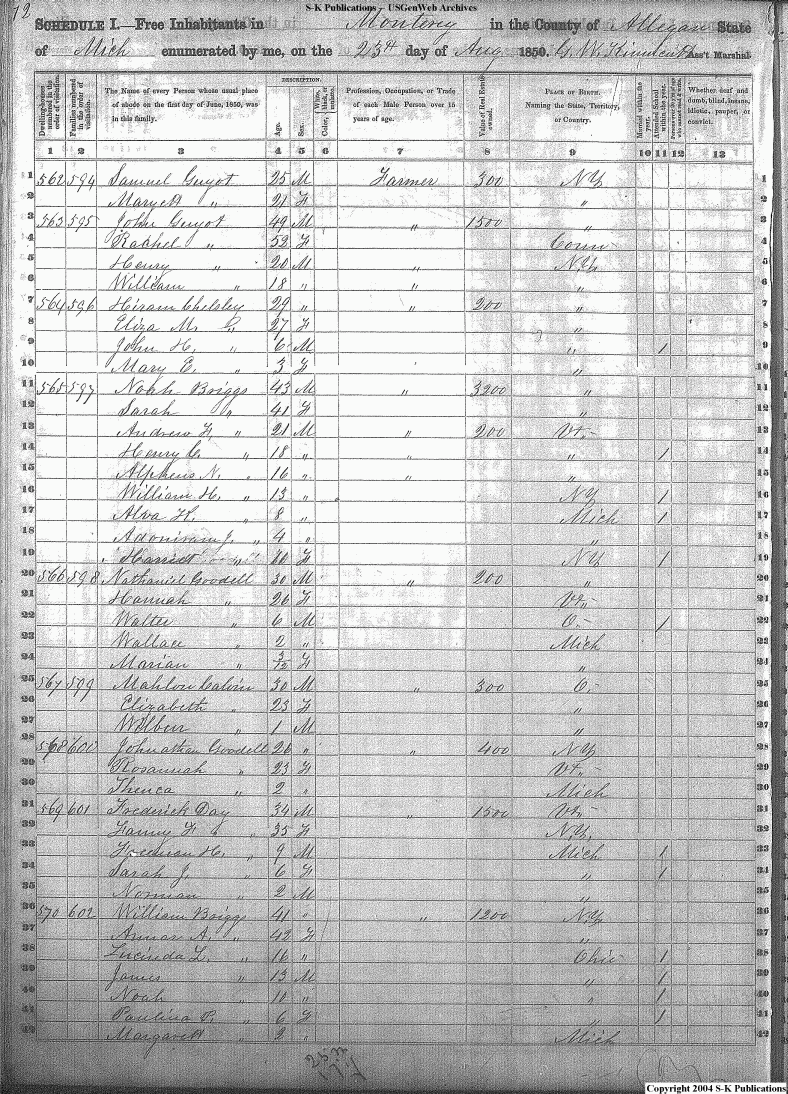 S-K Publications - USGenWeb Archives
12
SCHEDULE I.—Free Inhabitants in Monterey in the County of Allegan State
of Mich enumerated by me, on the 23d day of Aug 1850. Ass't Marshal.
Dwelling-houses numbered in the order of visitation.
Families numbered in the order of visitation.
The Name of every Person whose usual place of abode on the first day of June, 1850, was in this family.
DESCRIPTION.
Age.
Sex.
Color, White, black, or mulatto.
Profession, Occupation, or Trade of each Male Person over 15 years of age.
Value of Real Estate owned.
PLACE OF BIRTH. Naming the State, Territory, or Country.
Married within the year.
Attended School within the year.
Whether deaf and dumb, blind, insane, idiotic, pauper, or convict.
1 2 3 4 5 6 7 8 9 10 11 12 13
1 562 594 Samuel Guyot 25 M Farmer 300 N.Y 1
2 Maryett " 21 F " 2
3 563 595 John Guyot 49 M " 1500 " 3
4 Rachel " 52 F Conn 4
5 Henry " 20 M " N.Y. 5
6 William " 18 " " " 6
7 564 596 Hiram Chelsley 29 " " 200 " 7
8 Eliza M. 27 F " 8
9 John H. " 6 M " 1 9
10 Mary E. " 3 F " 10
11 565 597 Noah Briggs 43 M " 3200 " 11
12 Sarah " 41 F " 12
13 Andrew F. " 21 M " 200 Vt. 13
14 Henry C. " 18 " " " 1 14
15 Alpheus N. " 16 " " " 15
16 William H. " 13 " N.Y 1 16
17 Alva H. " 8 " Mich 1 17
18 Adoniram J. " 4 " " 18
19 Harriet " 10 F N.Y 1 19
20 566 598 Nathaniel Goodell 30 M " 200 " 20
21 Hannah " 26 F Vt. 21
22 Walter " 6 M O. 1 22
23 Wallace " 2 " Mich 23
24 Marian " 3/12 F " 24
25 567 599 Mahlon Calvin 30 M " 300 O. 25
26 Elizabeth " 23 F " 26
27 Wilber " 1 M " 27
28 568 600 Johnathan Goodell 26 " " 400 N.Y 28
29 Rosannah " 23 F Vt. 29
30 " 2 " Mich 30
31 569 601 Frederick Day 34 M " 1500 Vt. 31
32 Fanny F " 35 F N.Y. 32
33 Freeman H. " 9 M Mich 1 33
34 Sarah J. " 6 F " 1 34
35 Norman " 2 M " 35
36 570 602 William Briggs 41 " " 1200 N.Y 36
37 A. " 42 F " 37
38 Lucinda L. " 16 " Ohio 1 38
39 James " 13 M " 1 39
40 Noah " 10 " " 1 40
41 Paulina P. " 6 F " 1 41
42 Margarett " 2 " Mich 42
Copyright 2004 S-K Publications